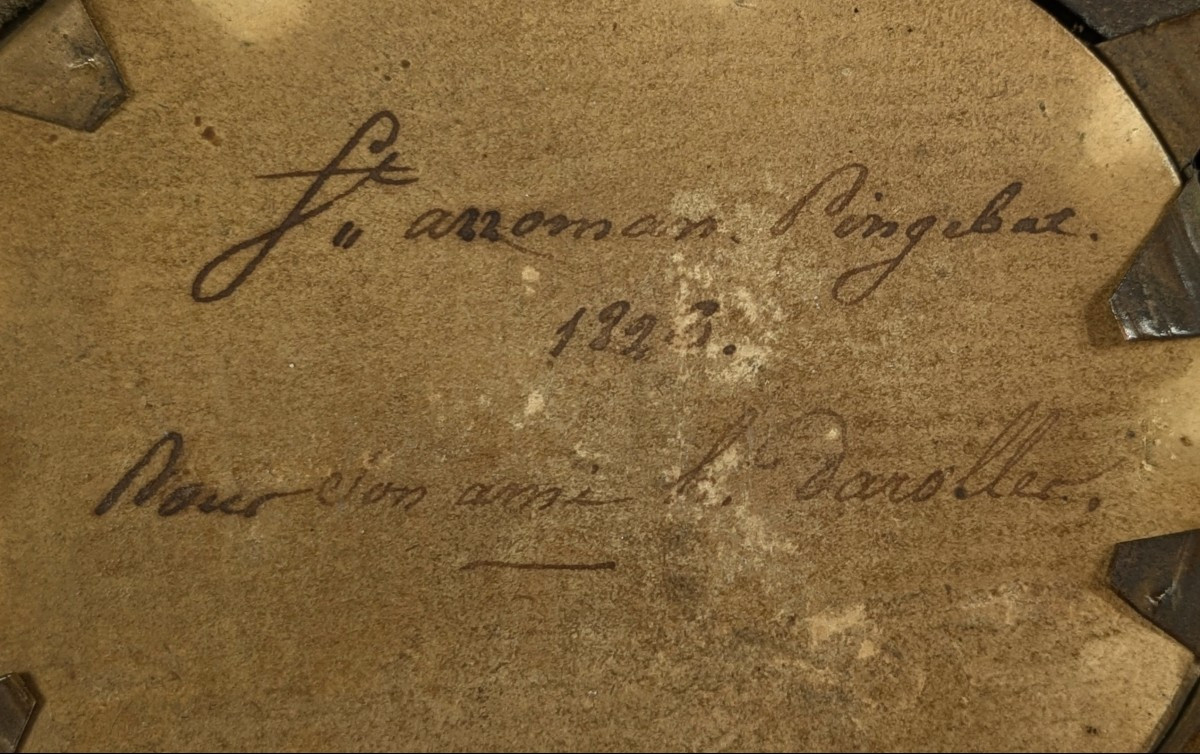 ft„ arroman. Pingebat.
1823.
Pour son ami h. Daroller.